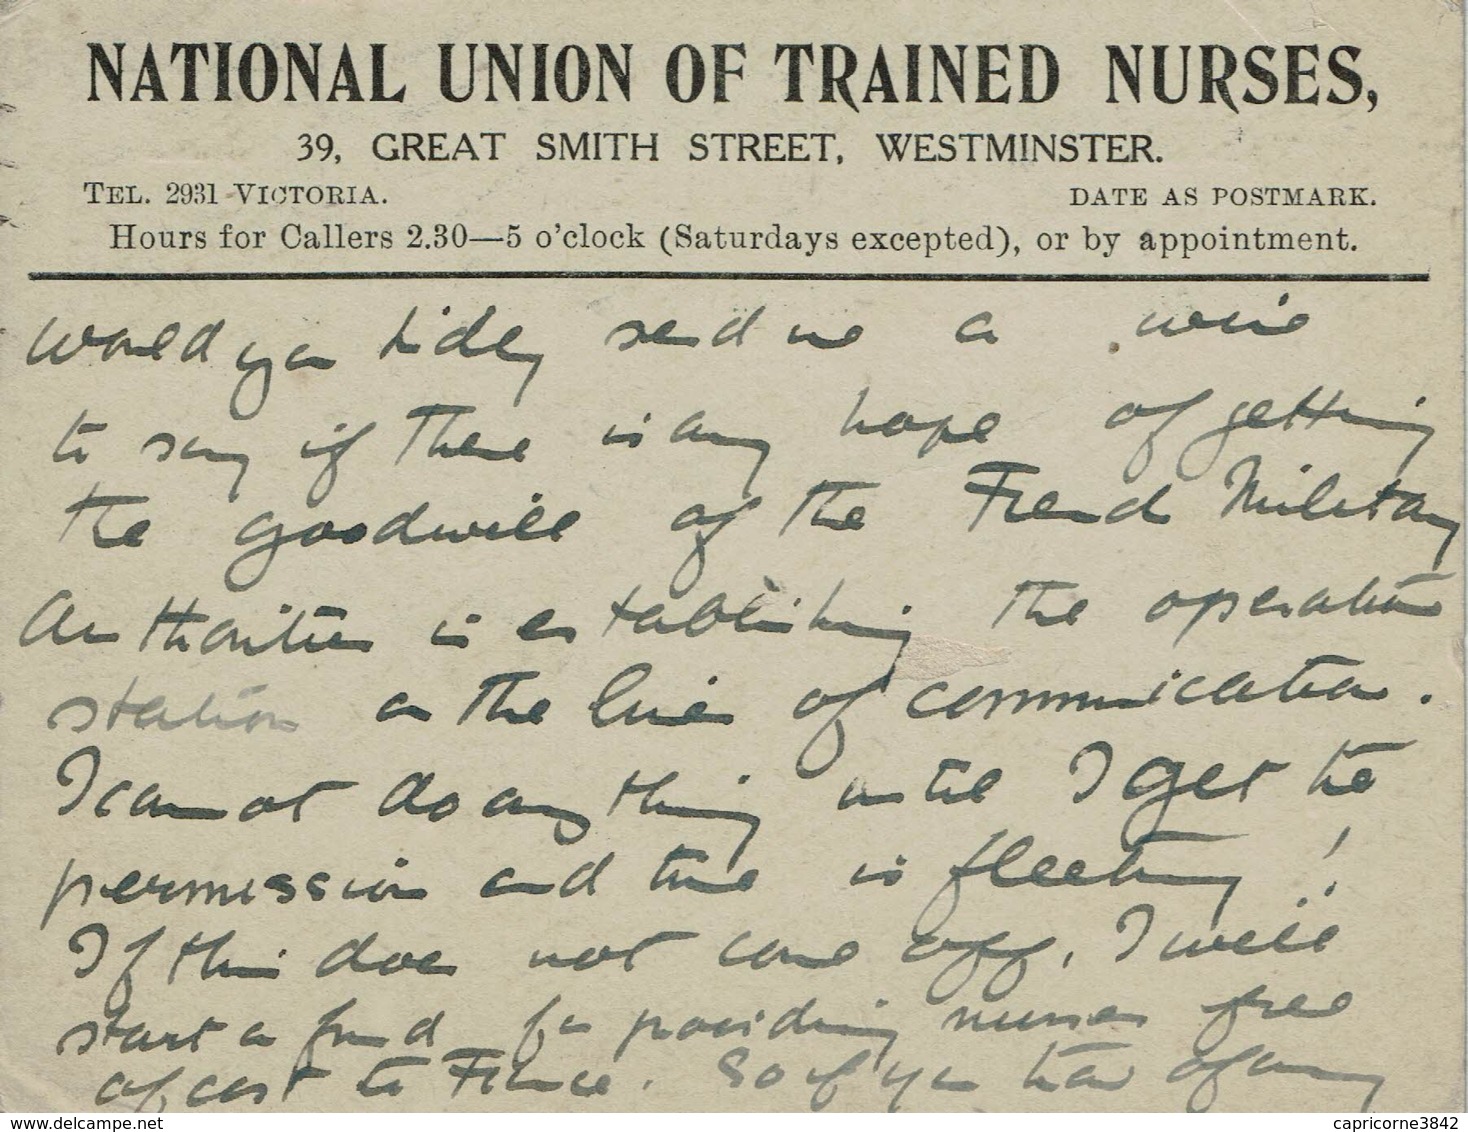 NATIONAL UNION OF TRAINED NURSES,
39, GREAT SMITH STREET, WESTMINSTER.
TEL. 2931 VICTORIA. DATE AS POSTMARK.
Hours for Callers 2.30—5 o'clock (Saturdays excepted), or by appointment.
Would you kindly send me a wire
to say if there is any hope of getting
the goodwill of the French Military
Authorities in establishing the operation
station on the lines of communication.
I cannot do anything until I get the
permission and time is fleeting!
If this does not come off, I will
start a fund for providing nurses free
of cost to France. So if you know of any
www.delcampe.net
capricorne3842